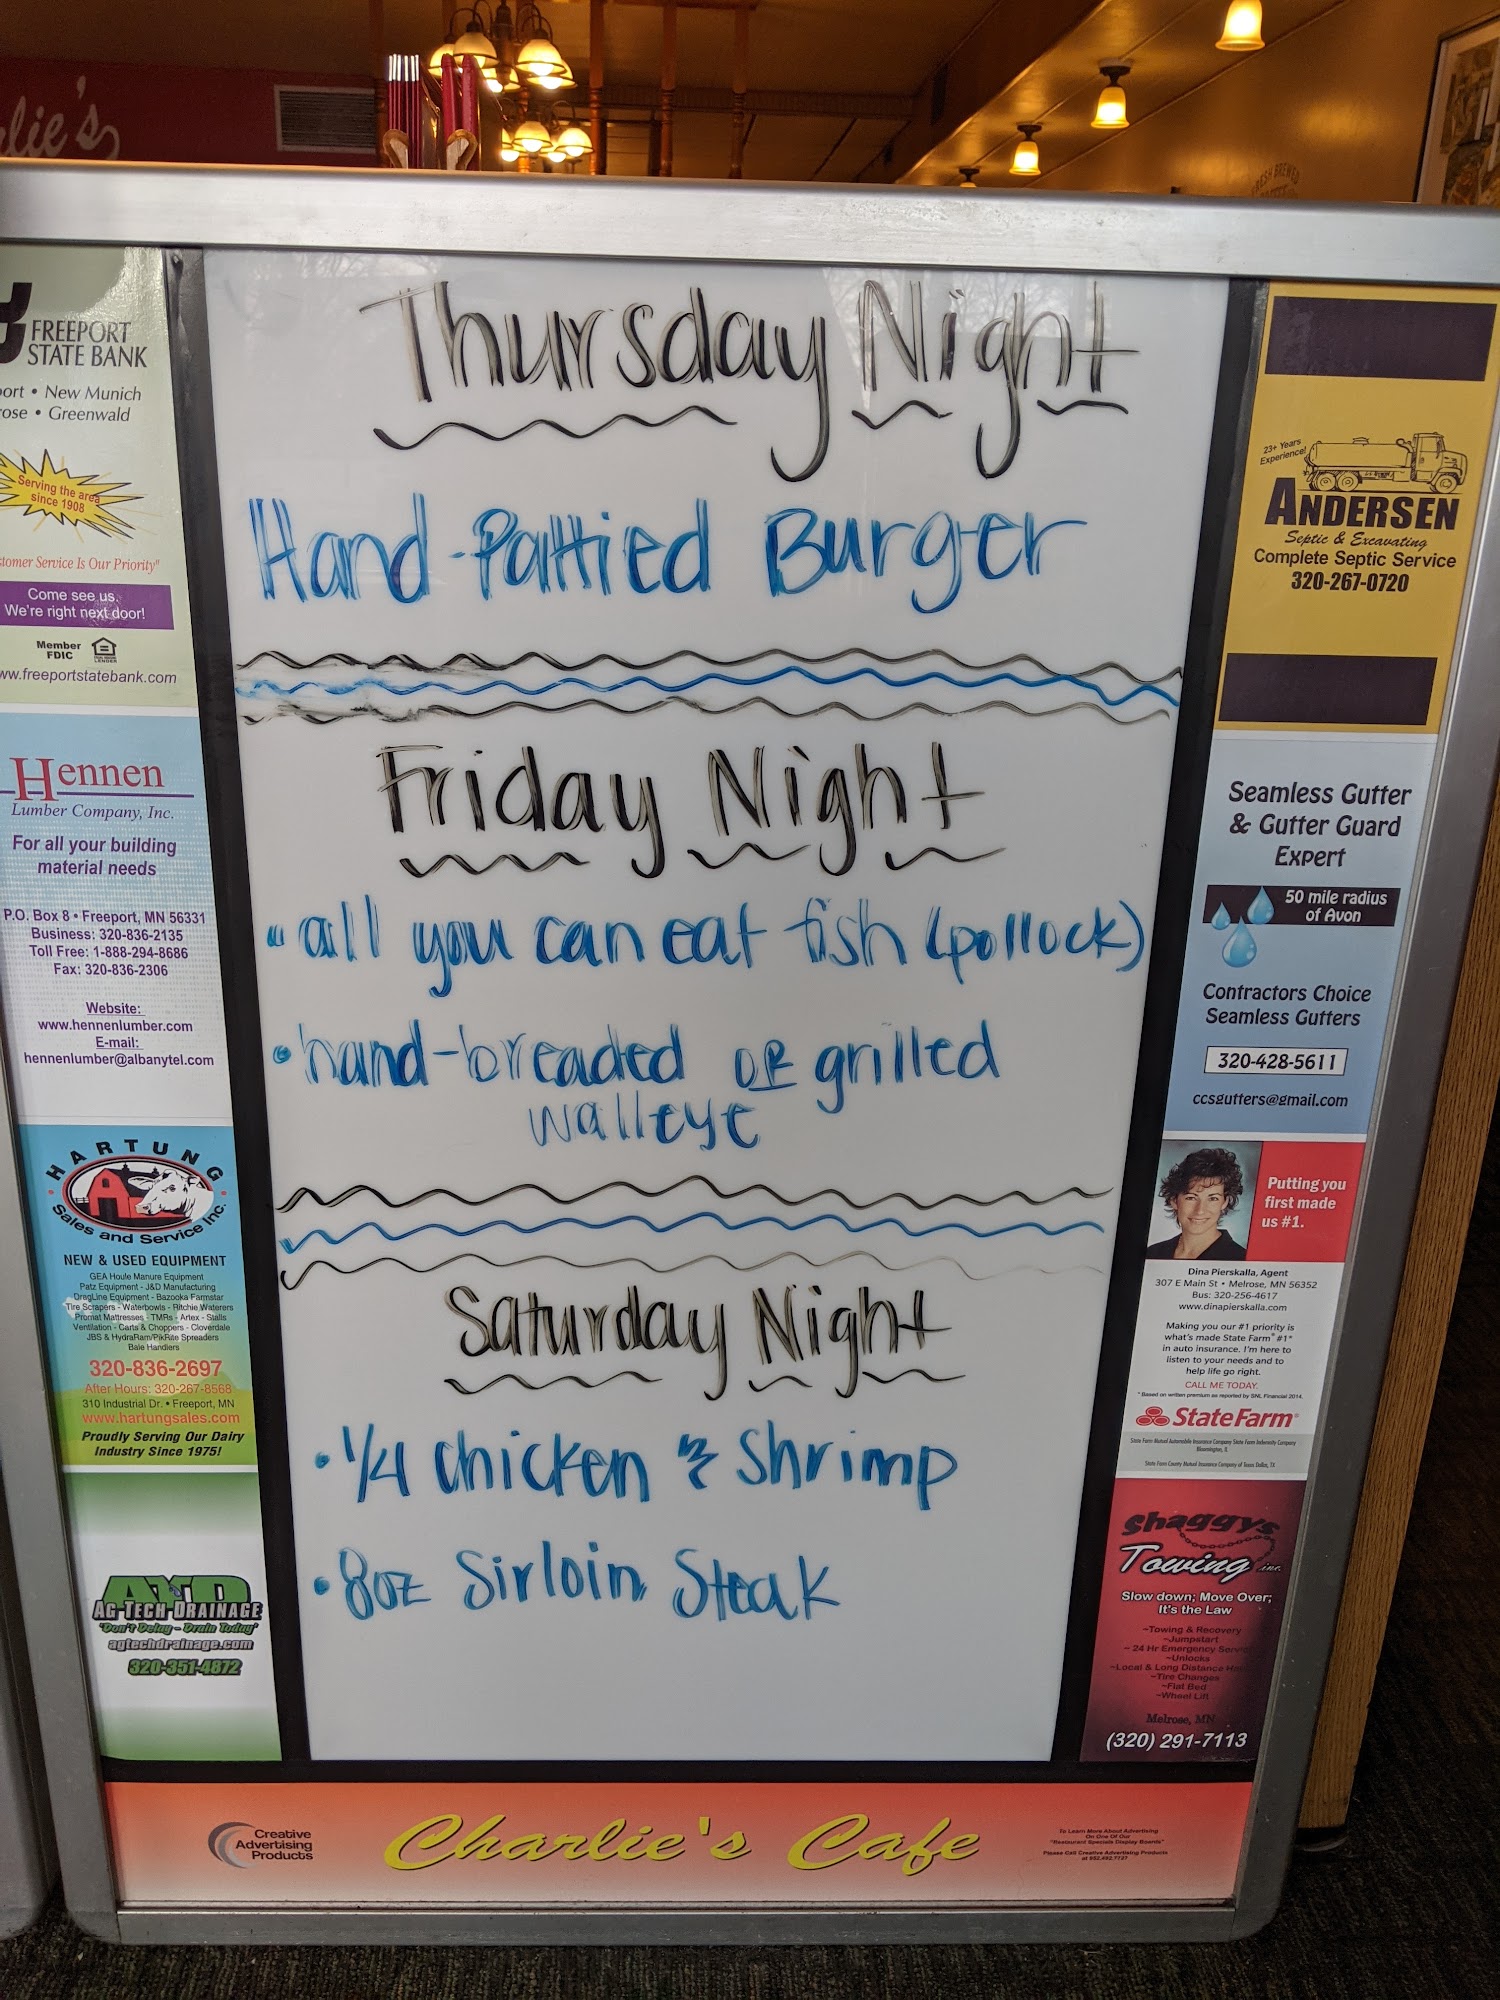 Thursday Night
Hand-Pattied Burger
Friday Night
• all you can eat fish (pollock)
• hand-breaded OR grilled
walleye
Saturday Night
• 1/4 chicken & shrimp
• 8oz Sirloin Steak
FREEPORT
STATE BANK
• New Munich
• Greenwald
Serving the area
since 1908
Service Is Our Priority"
Come see us.
We're right next door!
Member
FDIC
LENDER
Hennen
Lumber Company, Inc.
For all your building
material needs
P.O. Box 8 • Freeport, MN 56331
Business: 320-836-2135
Toll Free: 1-888-294-8686
Fax: 320-836-2306
Website:
www.hennenlumber.com
E-mail:
hennenlumber@albanytel.com
HARTUNG
Sales and Service Inc.
NEW & USED EQUIPMENT
GEA Houle Manure Equipment
Patz Equipment - J&D Manufacturing
DragLine Equipment - Bazooka Farmstar
Tire Scrapers - Waterbowls - Ritchie Waterers
Promat Mattresses - TMRs - Artex - Stalls
Ventilation - Carts & Choppers - Cloverdale
JBS & HydraRam/PikRite Spreaders
Bale Handlers
320-836-2697
After Hours: 320-267-8568
310 Industrial Dr. • Freeport, MN
www.hartungsales.com
Proudly Serving Our Dairy
Industry Since 1975!
AG TECH DRAINAGE
"Don't Delay - Drain Today"
agtechdrainage.com
320-351-4872
23+ Years
Experience!
ANDERSEN
Septic & Excavating
Complete Septic Service
320-267-0720
Seamless Gutter
& Gutter Guard
Expert
50 mile radius
of Avon
Contractors Choice
Seamless Gutters
320-428-5611
ccsgutters@gmail.com
Putting you
first made
us #1.
Dina Pierskalla, Agent
307 E Main St • Melrose, MN 56352
Bus: 320-256-4617
www.dinapierskalla.com
Making you our #1 priority is
what's made State Farm® #1*
in auto insurance. I'm here to
listen to your needs and to
help life go right.
CALL ME TODAY.
* Based on written premium as reported by SNL Financial 2014.
StateFarm®
State Farm Mutual Automobile Insurance Company State Farm Indemnity Company
Bloomington, IL
State Farm County Mutual Insurance Company of Texas Dallas, TX
Shaggys
Towing inc.
Slow down; Move Over;
It's the Law
~Towing & Recovery
~Jumpstart
~ 24 Hr Emergency
~Unlocks
~Local & Long Distance
~Tire Changes
~Flat Bed
~Wheel Lift
Melrose, MN
(320) 291-7113
Creative
Advertising
Products
Charlie's Cafe
To Learn More About Advertising
On One Of Our
"Restaurant Specials Display Boards"
Please Call Creative Advertising Products